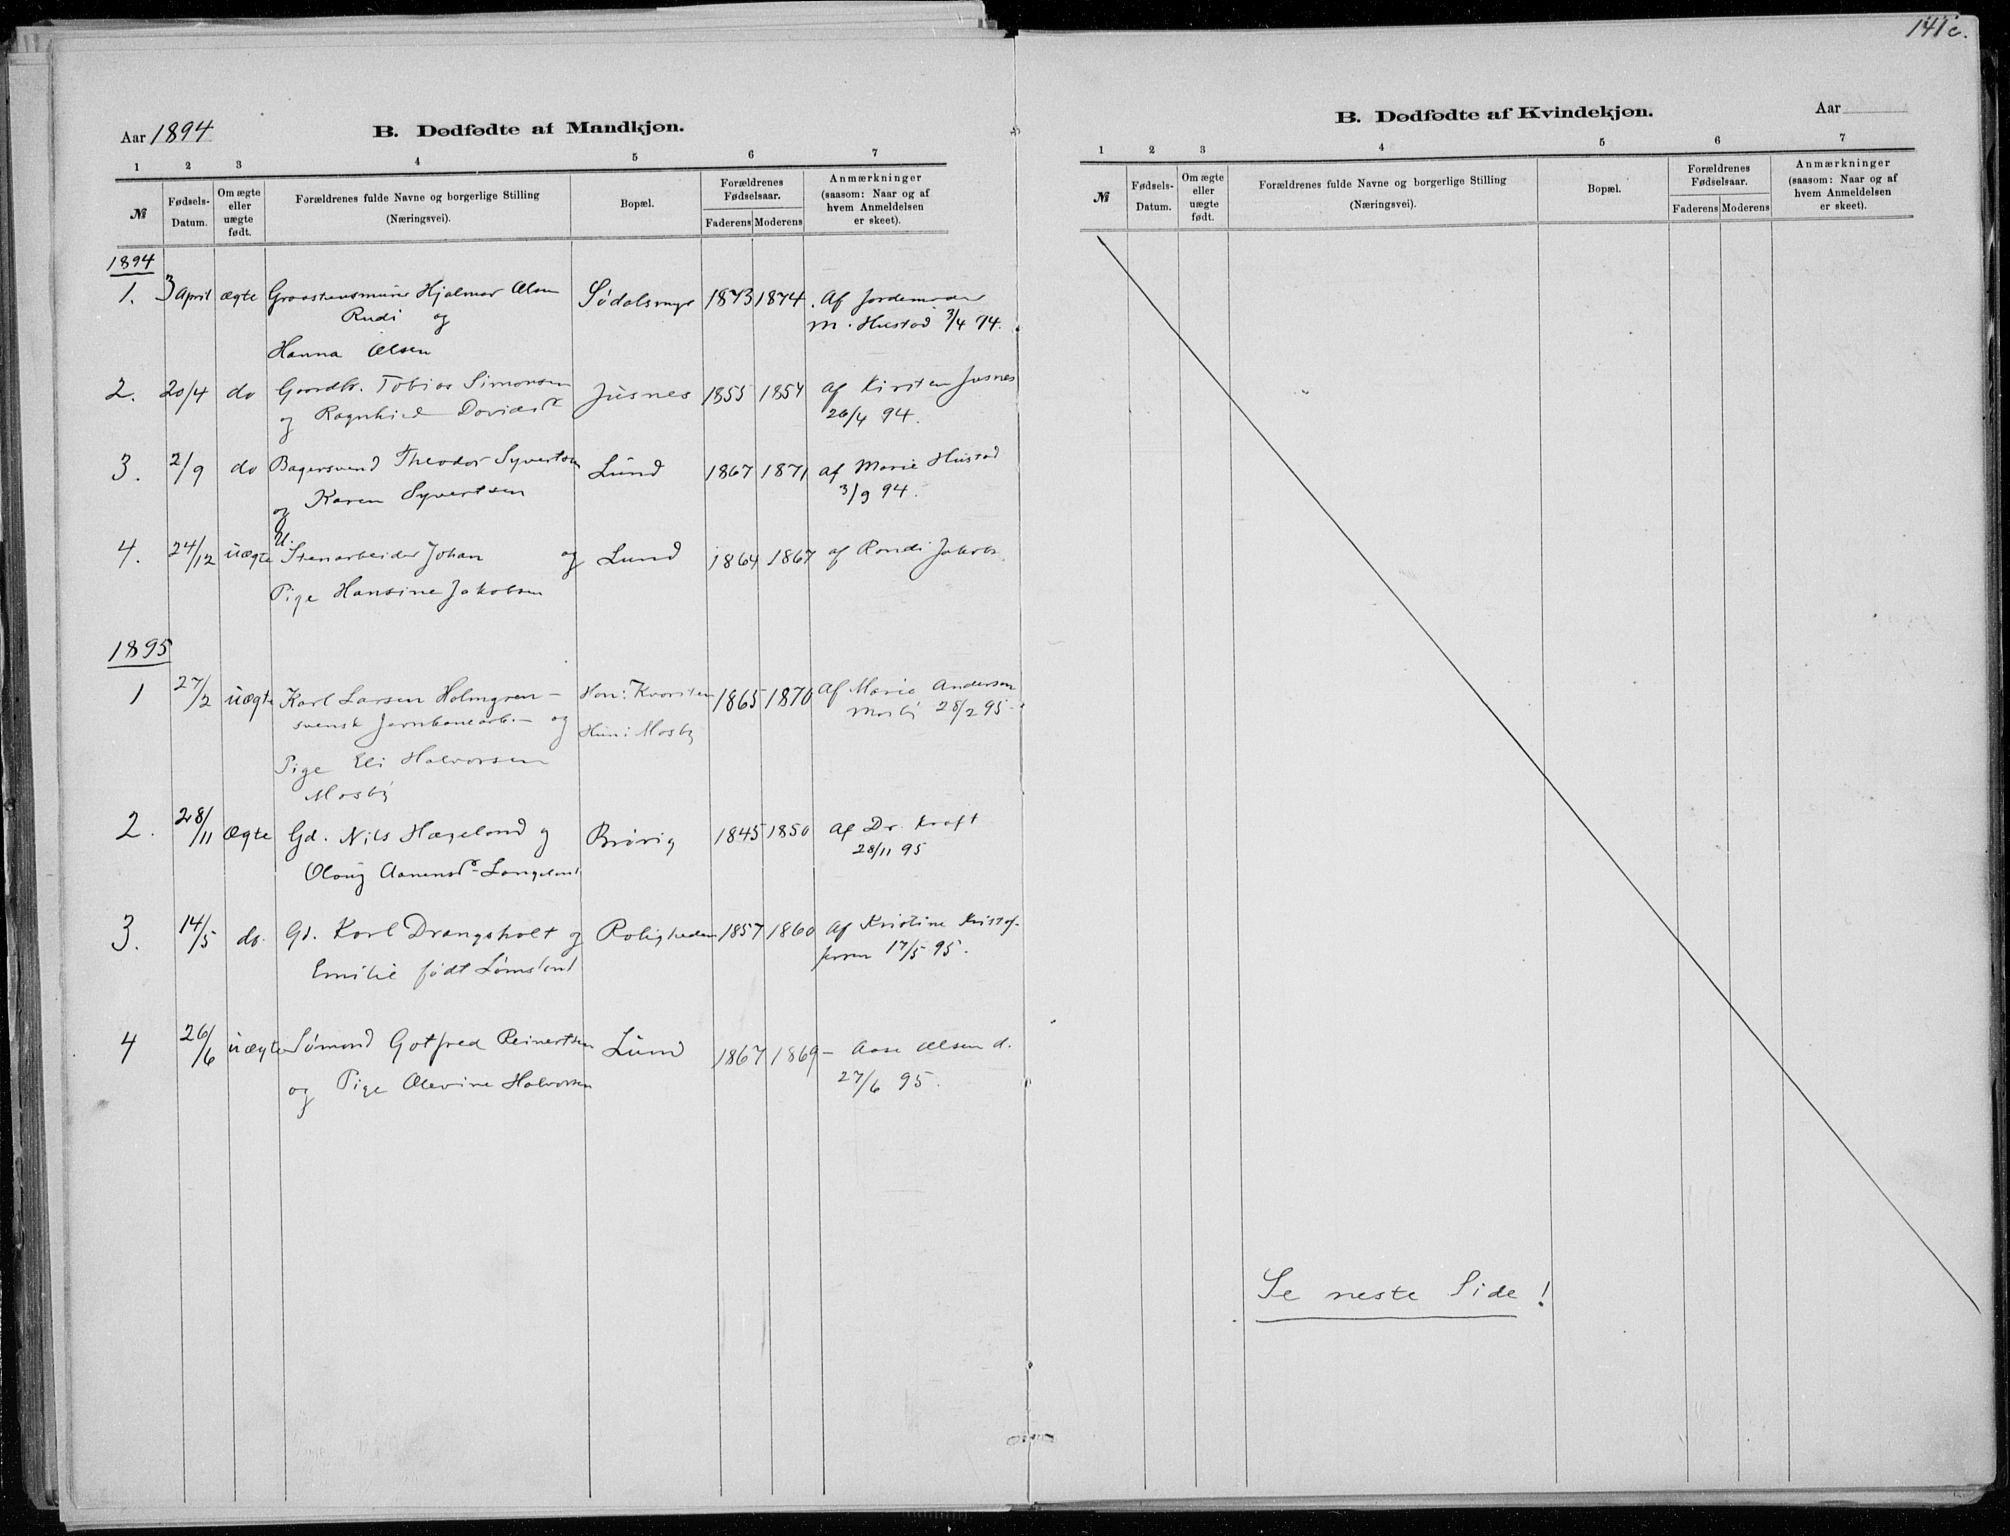 141c.
Aar 1894
B. Dødfødte af Mandkjøn.
1 2 3 4 5 6 7
№
Fødsels-
Datum.
Om ægte
eller
uægte
født.
Forældrenes fulde Navne og borgerlige Stilling
(Næringsvei).
Bopæl.
Forældrenes
Fødselsaar.
Faderens Moderens
Anmærkninger
(saasom: Naar og af
hvem Anmeldelsen
er skeet).
1894
1. 3 April ægte Hjalmar Olsen Sødalsmyr 1873 1874. Af Jordemoder
Rudi og M. Hustad 3/4 94.
Hanna Olsen
2. 20/4 do Gaardbr. Tobias Simonsen Jusnes 1855 1854 af Kirsten Jusnes
og Ragnhild Davidsd 26/4 94.
3. 2/9 do Bagersvend Theodor Syvertsen Lund 1867 1871 af Marie Hustad
og Karen Syvertsen 3/9 94.
4. 24/12 uægte U. Stenarbeider Johan og Lund 1864 1867 af Randi Jakobs
Pige Hansine Jakobsen
1895
1 27/2 uægte Karl Larsen Holmgren – Han: Kvarsten 1865 1870 Af Marie Andersen
svensk Jernbanearb. – og Hun: Mosby Mosby 28/2 95 –
Pige Eli Halvorsen
Mosby
2. 28/11 Ægte Gd. Nils Hægeland og Brøvig 1845 1850 Af Dr. Kraft
28/11 95
Olaug Aanensd. Langeland
3. 14/5 do. Gd. Karl Drangsholt og Roligheden 1857 1860 Af Kristine Kristof-
Emilie født Lømsland fersen 17/5 95.
4 26/6 uægte Sømand Gotfred Reinertsen Lund 1867 1869 – Aase Olsen d.
og Pige Olevine Halvorsen 27/6 95.
B. Dødfødte af Kvindekjøn.
Aar
1 2 3 4 5 6 7
№
Fødsels-
Datum.
Om ægte
eller
uægte
født.
Forældrenes fulde Navne og borgerlige Stilling
(Næringsvei).
Bopæl.
Forældrenes
Fødselsaar.
Faderens Moderens
Anmærkninger
(saasom: Naar og af
hvem Anmeldelsen
er skeet).
Se neste Side!